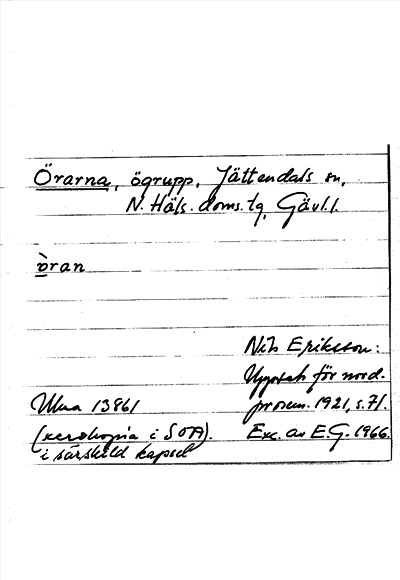 Örarna, ögrupp, Jättendals sn,
N. Häls. doms.tg, Gävl.l.
òran
Nils Eriksson:
Uppsats för nord.
prosem. 1921, s.71.
Ulma 13861
(xerokopia i SOA).
Exc. av E.G. 1966.
i särskild kapsel